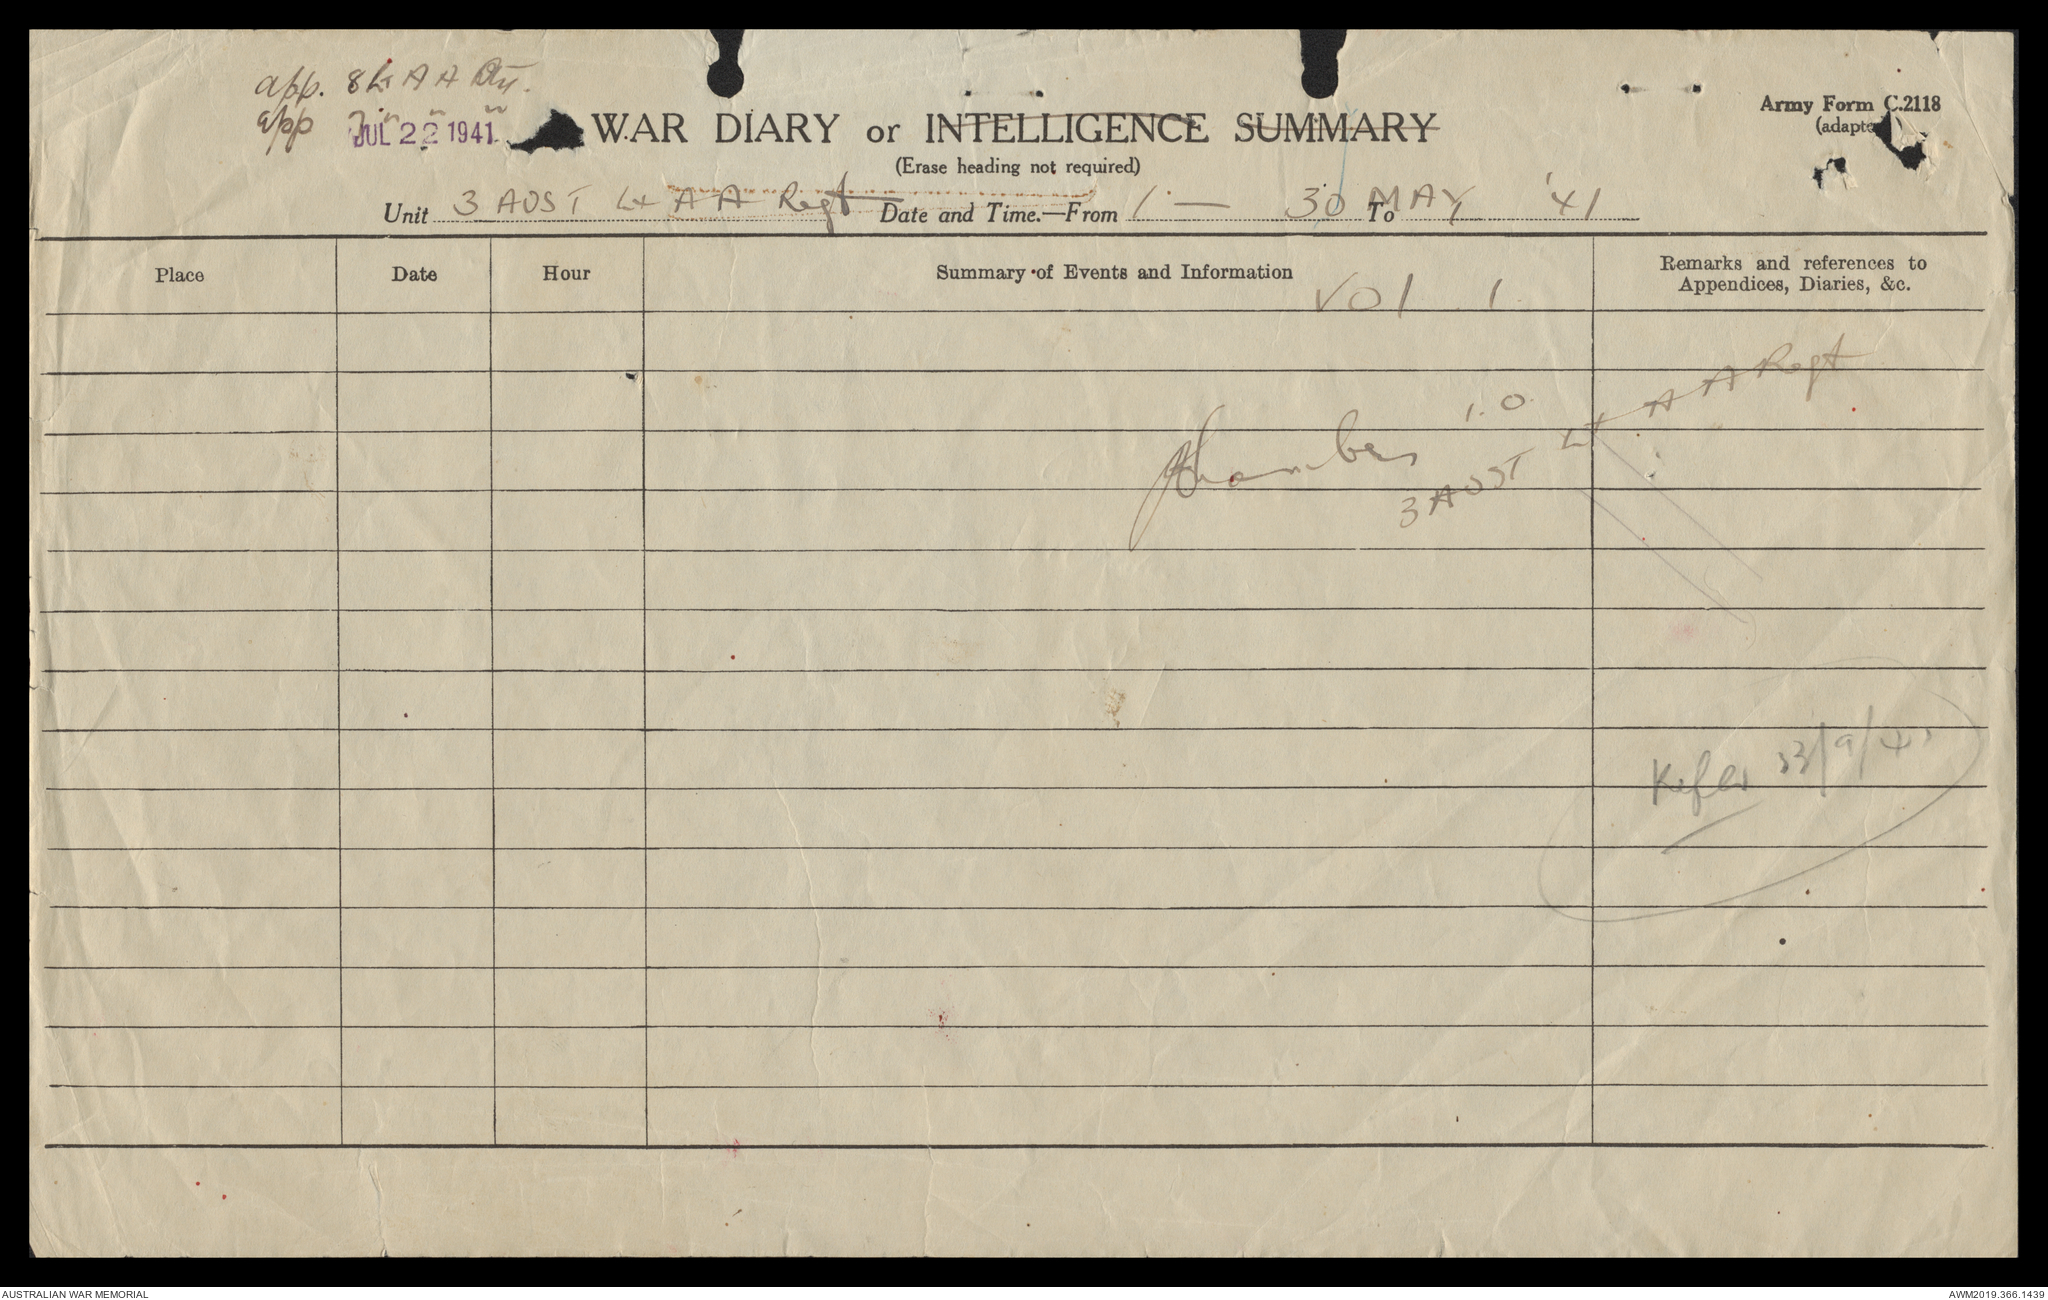 app. 8 Lt A A Bty.
app 7 " " "
JUL 22 1941
WAR DIARY or INTELLIGENCE SUMMARY
Army Form C.2118
(adapte
(Erase heading not required)
Unit 3 AUST Lt A A Regt Date and Time.—From 1 — 30 To MAY '41
Place Date Hour Summary of Events and Information Remarks and references to
Appendices, Diaries, &c.
VOL 1.
I.O.
3 AUST Lt A A Regt
AUSTRALIAN WAR MEMORIAL
AWM2019.366.1439